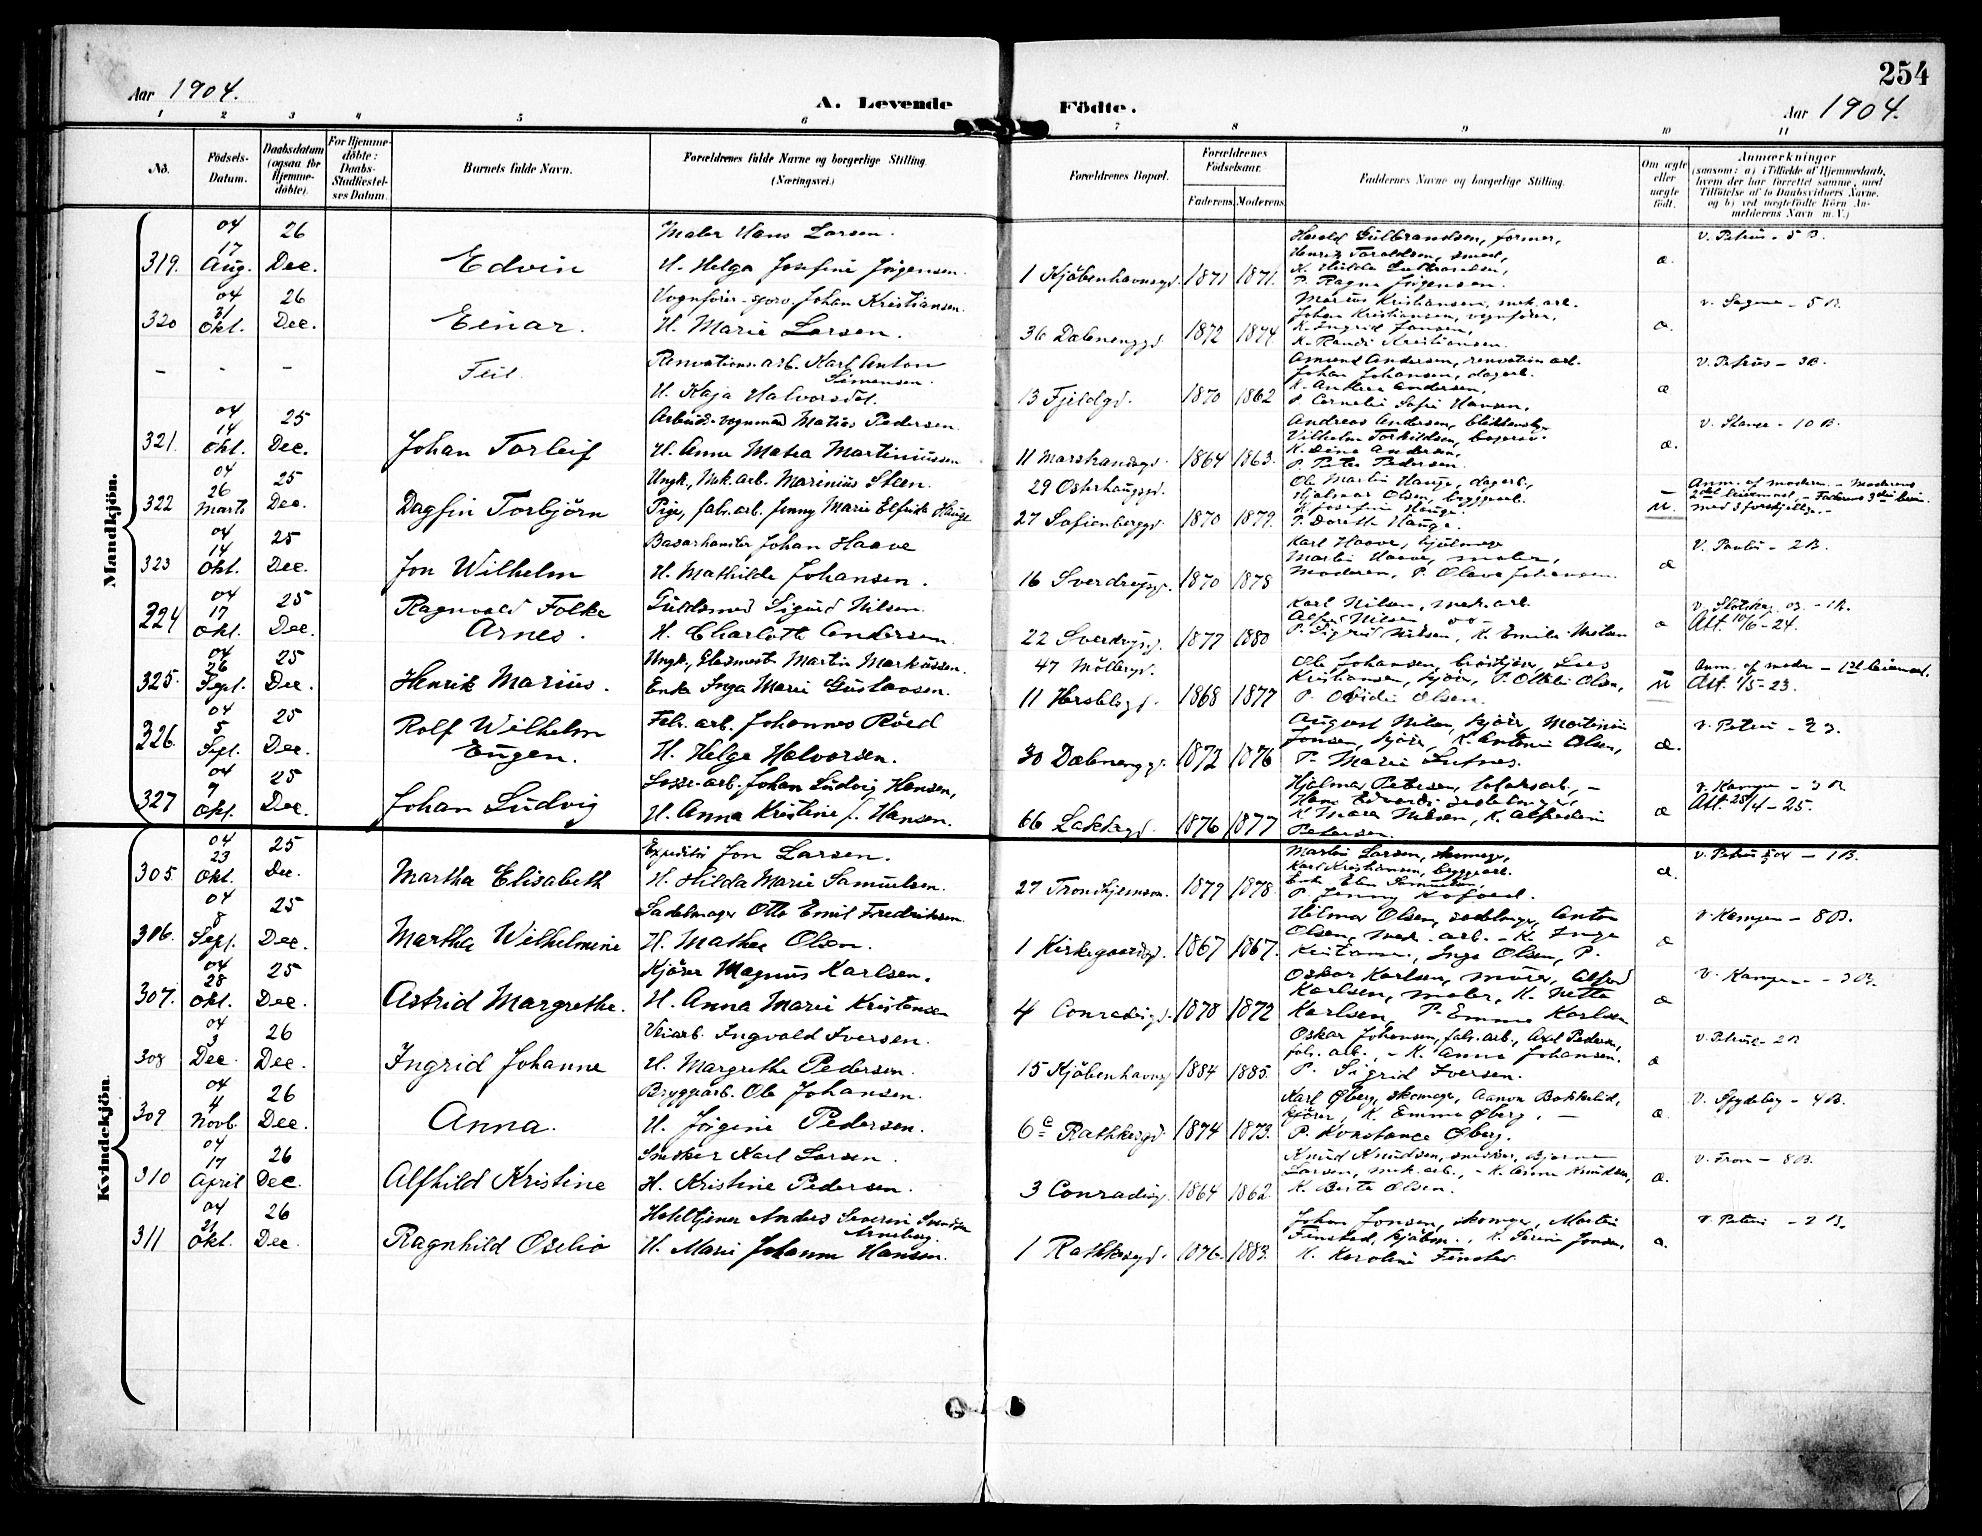 254
Aar 1904.
A. Levende Födte.
Aar 1904.
1 2 3 4 5 6 7 8 9 10 11
No.
Födsels-Datum.
Daabsdatum (ogsaa for Hjemme-döbte).
For Hjemme-döbte: Daabs-Stadfæstelses Datum.
Barnets fulde Navn.
Forældrenes fulde Navne og borgerlige Stilling. (Næringsvei.)
Forældrenes Bopæl.
Forældrenes Födselsaar.
Faderens. Moderens.
Faddernes Navne og borgerlige Stilling.
Om ægte eller uægte födt.
Anmærkninger
(saasom: a) i Tilfælde af Hjemmedaab, hvem der har forrettet samme, med Tilföielse af to Daabsvidners Navne, og b) ved uægtefödte Börn Anmelderens Navn m. V.)
Mandkjön.
04 26 Maler Hans Larsen.
319. 17 Aug. Dec. Edvin H. Helga Josefine Jörgensen. 1 Kjöbenhavnsgd. 1871 1871. P. Ragna Jörgensen. æ. v. Petrus - 5 B.
04 26 Vognfører-sporv. Johan Kristiansen.
320 31 Okt. Dec. Einar. H. Marie Larsen. 36 Dælenenggd. 1872 1874. Marius Kristiansen, mek. arb. Johan Kristiansen, vognfører, K. Ingrid Jansen, K. Randi Kristiansen. æ. v. Sagene - 5 B.
- - - Feil. Renovations arb. Karl Anton Simensen.
H. Kaja Halvorsdt. 13 Fjeldgd. 1870 1862 Amund Andersen, renovation arb. Johan Johansen, dagarb. K. Andrea Andersen, P. Cornelia Sofie Hansen. æ v. Petrus - 3 B.
04 25 Arbeids-vognmand Matias Pedersen.
321. 14 Okt. Dec. Johan Torleif H. Anna Matea Martiniussen 11 Marstrandsgd. 1864 1863. Andreas Andersen, Vilhelm Torkildsen, K. Dina Andersen, P. Petra Pedersen. æ. - 10 B.
04 25 Ungk, Mek. arb. Marinius Steen. 29 Osterhausgd.
322 26 Marts Dec. Dagfin Torbjörn Pige, fab. arb. Jenny Marie Elfride Hauge 27 Sofienberggd. 1870 1879. Ole Martin Hauge, dagarb, Hjalmar Olsen, bryggearb. K. Josefine Hauge. P. Doreth Hauge. u. Anm. af moderen - Moderens 2det leiermaal, - Faderens 3die leierm. med 3 forskjellige. -
04 25 Basarhandler Johan Haave
323 14 Okt. Dec. Jon Wilhelm H. Mathilde Johansen. 16 Sverdrupsgd. 1870 1878 Karl Haave, hjulmager Martin Haave, maler, Moderen, P. Olava Johansen. æ V. Paulus - 2 B.
04 25 Guldsmed Sigurd Nilsen.
324 17 Okt. Dec. Ragnvald Folke Arnes. H. Charlotte Andersen. 22 Sverdrupsg. 1877 1880 Karl Nilsen, mek. arb. Alfred Nilsen P. Sigrid Nilsen, K. Emilie Nilsen æ Att. 10/6 - 24.
04 25 Ungk, Martin Markussen. 47 Möllergd.
325. 26 Sept. Dec. Henrik Marius. Enke Inga Marie Gustavsen. 11 Herslebsgd. 1868 1877 Ole Johansen, Kristiansen, kjörer, P. Ottilie Olsen, P. Olsen. u Anm. af moder - 1ste leiermaal. Att. 1/5 - 23.
04 25 Fab. arb. Johannes Röed
326. 5 Sept. Dec. Rolf Wilhelm Eugen. H. Helga Halvorsen. 30 Dælenengg. 1872 1876 August Nilsen, kjörer, Jonsen, kjörer, K. Antonie Olsen, P. Marie æ. v. Petrus - 2 B.
04 25 Losse-arb. Johan Ludvig Hansen,
327 9 Okt. Dec. Johan Ludvig H. Anna Kristine f. Hansen. 66 Lakkegd. 1876 1877 Hjalmar Petersen, K. Maren Nilsen, K. Alfredine Pedersen. æ v. Kampen - 3 B. Att. 25/4 - 25.
Kvindekjön.
04 25 Expeditör Jon Larsen.
305 23 Okt. Dec. Martha Elisabeth H. Hilda Marie Samuelsen. 27 Trondhjemsvn. 1879 1878. Martin Larsen, skomager, Karl Kristiansen, bryggearb. Enke Elen Samuelsen, P. Jenny æ. v. Petrus - 1 B.
04 25 Sadelmager Otto Emil Fredriksen
306. 8 Sept. Dec. Martha Wilhelmine H. Mathea Olsen. 1 Kirkegaardsgd. 1867 1867. Hilmar Olsen, Anton Olsen, mek. arb. - K. Inga Olsen, P. æ v. Kampen - 8 B.
04 25 Kjörer Magnus Karlsen.
307. 28 Okt. Dec. Astrid Margrethe. H. Anna Marie Kristensen 4 Conradisgd. 1878 1872 Oskar Karlsen, murer, Alfred Karlsen, maler, K. Netta Karlsen, P. Emma Karlsen æ v. Kampen - 3 B.
04 26 Veiarb. Ingvald Iversen.
308 3 Dec. Dec. Ingrid Johanne H. Margrethe Pedersen. 15 Kjöbenhavnsg 1884 1885. Oskar Johansen, fab. arb., Axel Pedersen, fab. arb., - K. Anna Johansen. P. Sigrid Iversen. æ v. Petrus - 2 B
04 26 Bryggearb. Ole Johansen.
309 4 Novb. Dec. Anna. H. Jörgine Pedersen. 6 c Rathkesgd. 1874 1873. Karl Öberg, skomager, Aanon kjörer, K. Emma Öberg, - P. Konstance Öberg. æ. V. Spydeberg - 4 B.
04 26 Snedker Karl Larsen.
310 17 April Dec. Alfhild Kristine H. Kristine Pedersen. 3 Conradisg. 1864 1862. Knud Knudsen, snedker, Bjarne Larsen, mek. arb., - K. Anna Knudsen, K. Berte Olsen. æ. v. Tron - 8 B.
04 26 Hoteltjener Anders Severin Svendsen Arneberg.
311 21 Okt. Dec. Ragnhild Oselia H. Marie Johanne Hansen. 1 Rathkesgd. 1876. 1883. Johan Jonsen, skomager, Martin Finstad, kjöbm., K. Serine Jonsen, K. Karoline Finstad. æ. v. Petrus - 2 B.